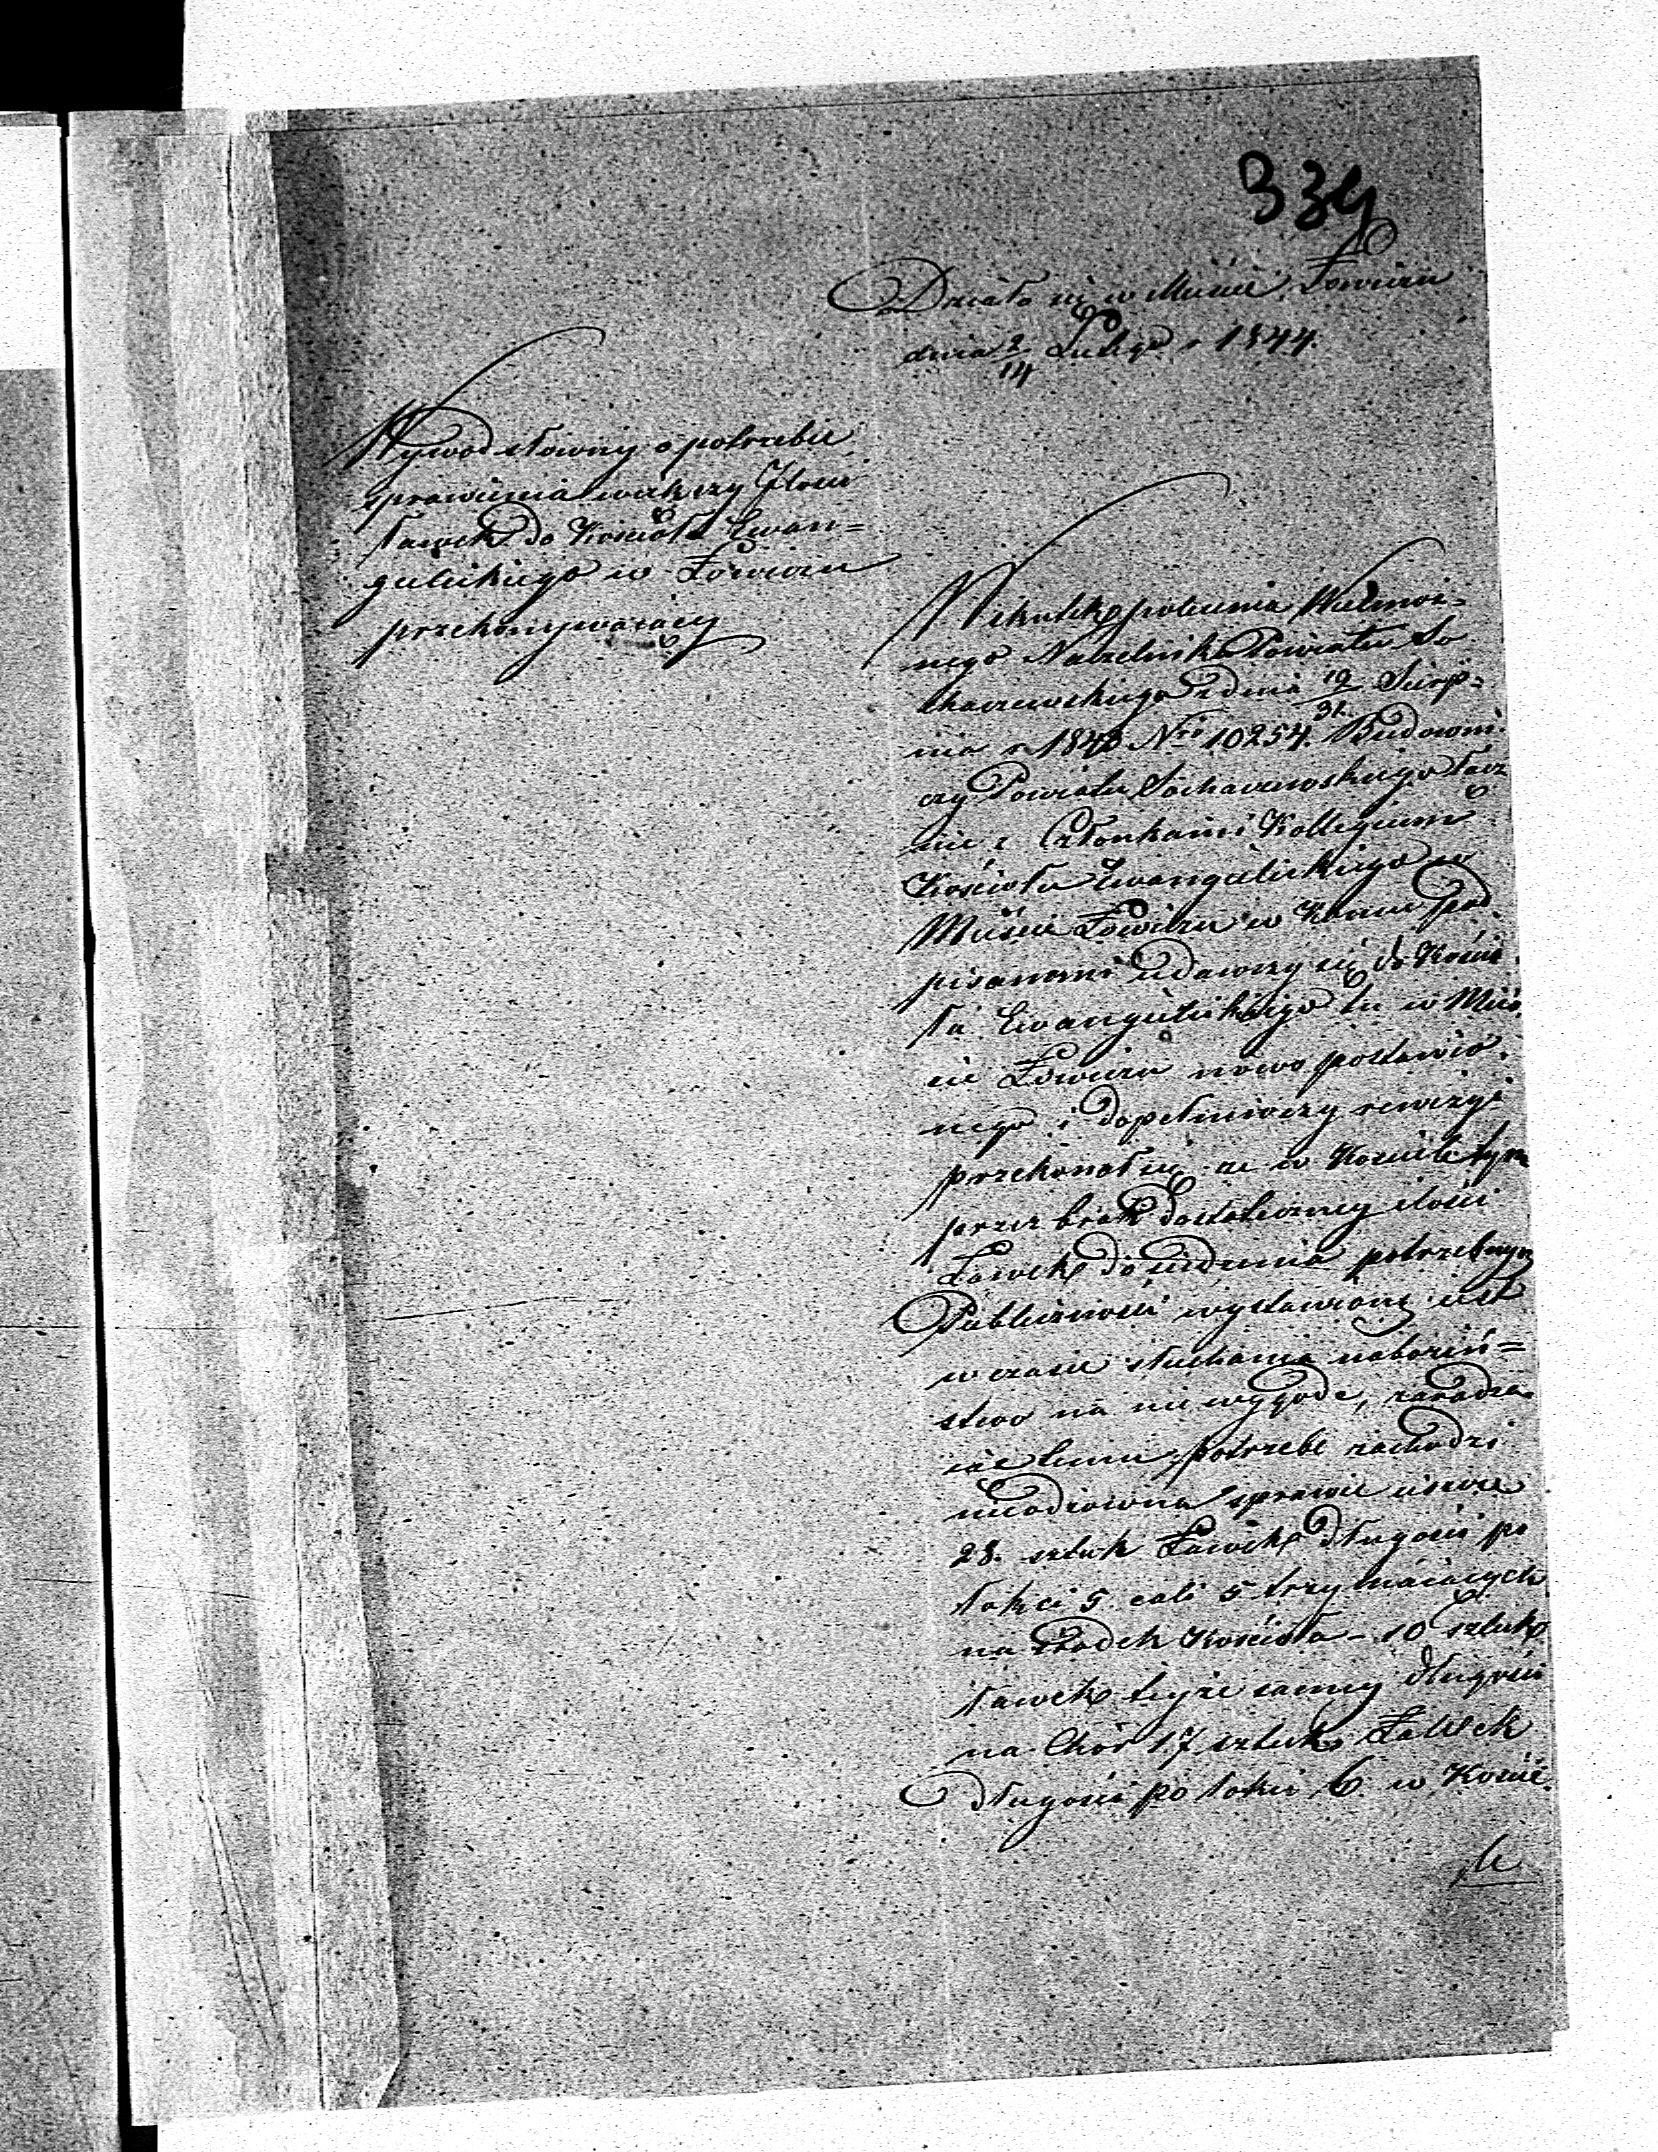 339
Działo się w Mieście Łowiczu
dnia 2/14 Lutego r 1844.
Wywod słowny o potrzebie
sprawienia większy Ilości
ławek do Kościoła Ewan=
gelickiego w Łowiczu
przekonywaiący
W skutek polecenia Wielmoż=
nego Naczelnika Powiatu So
chaczewskiego z dnia 19/31 Sierp=
nia r 1843 Nro 10254. Budowni
czy Powiatu Sochaczewskiego łącz
nie z Członkami Kollegium
Kościoła Ewangelickiego w
Mieście Łowiczu w Końcu pod
pisanemi udawszy się do Kościo
ła Ewangelickiego tu w Mieś
cie Łowiczu nowo postawio
nego i dopełniwszy rewizyi
przekonał się że w Kościele tym
przez brak dostateczney ilości
Ławek do siedzenia potrzebnych
Publiczność wystawioną iest
w czasie słuchania nabożeń=
stwa na nie wygodę, zaradza
iąc temu potrzeba zachodzi
nieodzowna sprawić ieszcze
28. sztuk Ławek długości po
łokci 5 cali 5 trzymaiących
na środek Kościoła – 10 sztuk
ławek teyże samey długości
na Chór 17 sztuk Ławek
długości po łokci 6. w Kościé.
le